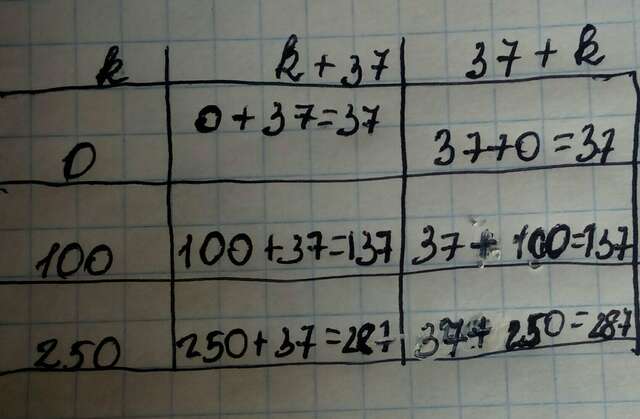 k k+37 37+k
0 0+37=37 37+0=37
100 100+37=137 37+100=137
250 250+37=287 37+250=287